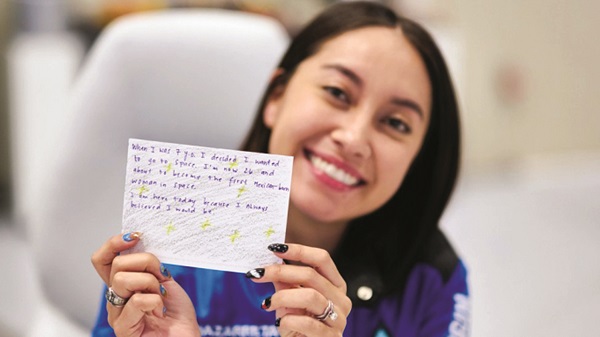 When I was 7 y.o. I decided I wanted
to go to space. I'm now 26 and
about to become the first Mexican-born
woman in space.
I am here today because I always
believed I would be